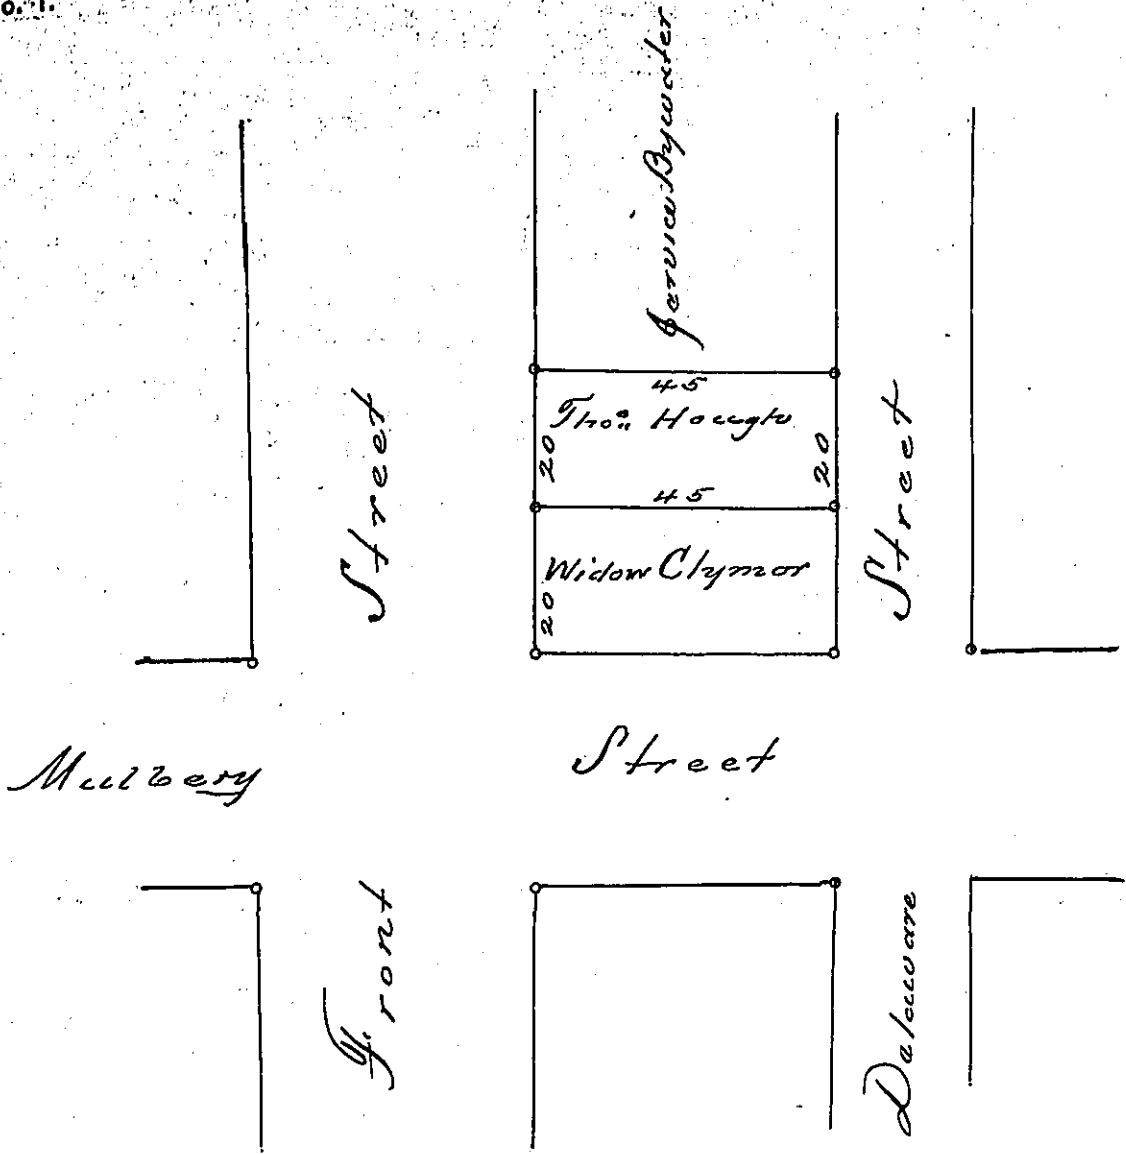 Jarvice Bywater
45
Tho.s Hough
20
20
45
Widow Clymor
20
Street
Street
Mulbery Street
Front
Dalaware